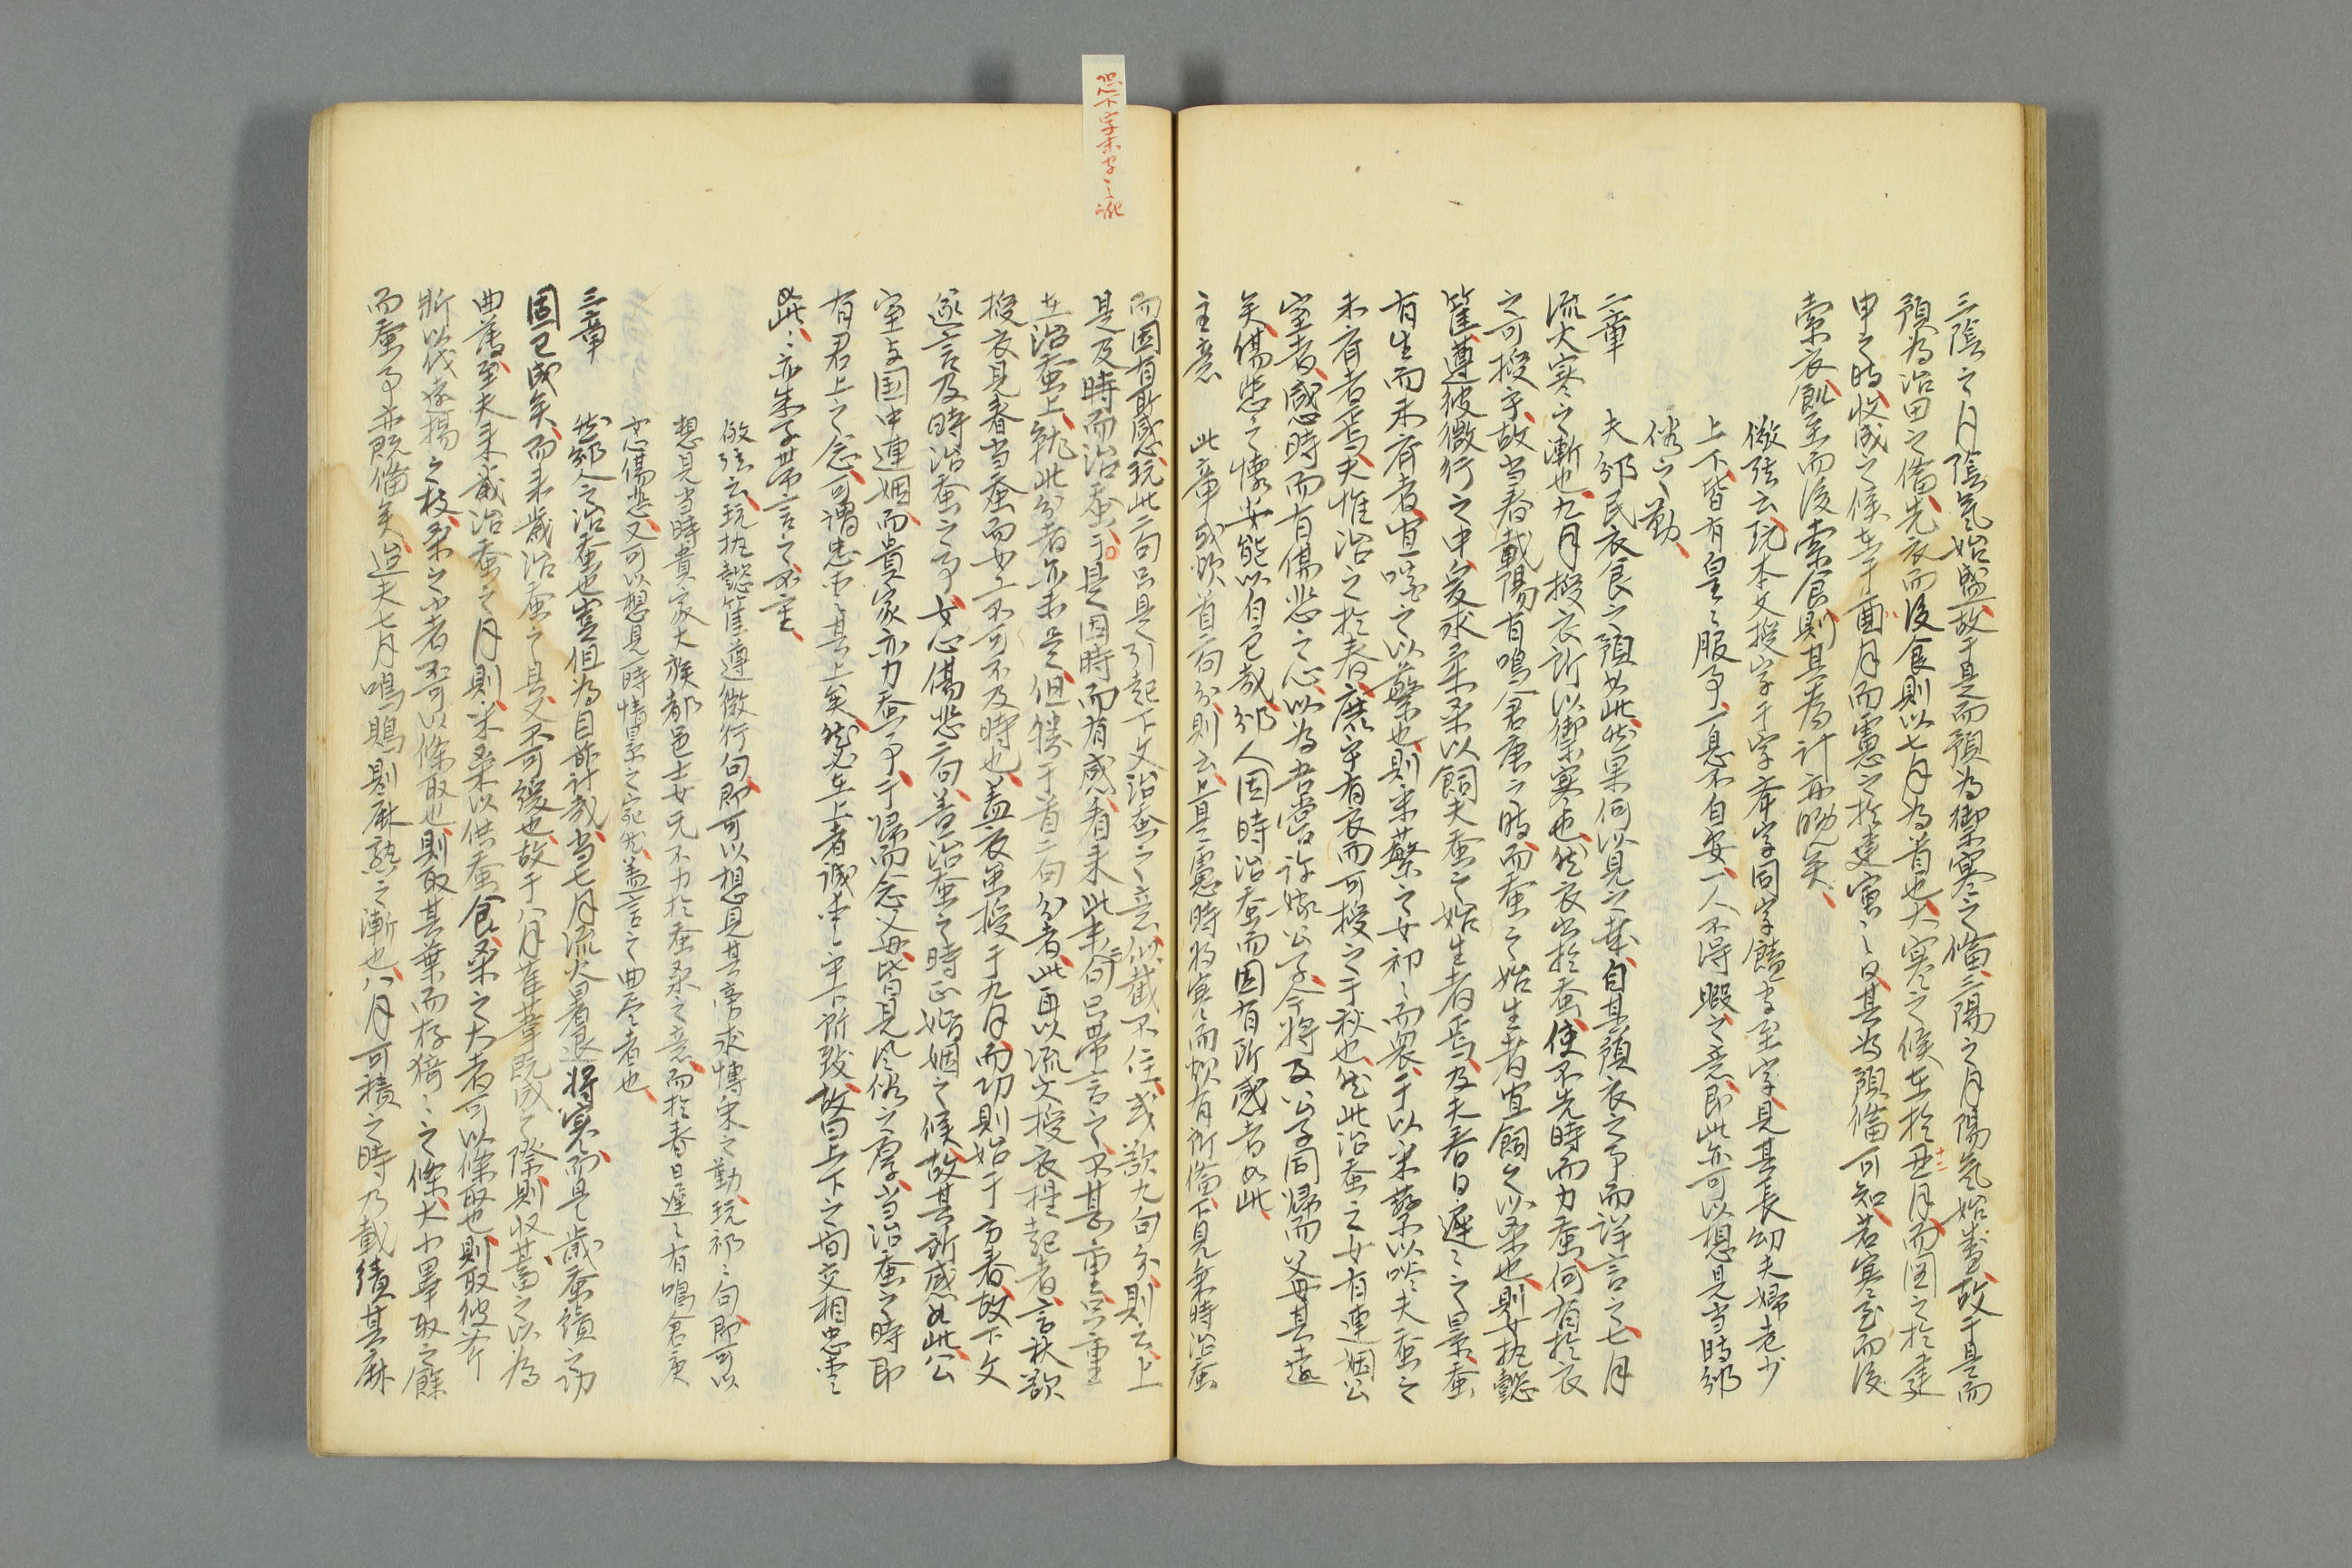 三陰之月陰氣始盛故于是而預為禦寒之備三陽之月陽氣始盛故于是而
預為治田之備先衣而後食則以七月為首也大寒之候在於丑月而圖之於建
申之時收成之候在于酉月而慮之於建寅之日其為預備可知若寒至而後
索衣飢至而後索食則其為計亦晚矣
徽弦云玩本文授字于字舉字同字饁字至字見其長幼夫婦老少
上下皆有皇〻服事一息不自安一人不得暇之意即此亦可以想見当時邠
俗之勤
二章　夫邠民衣食之預如此然果何以見之哉自其預衣之事而詳言之七月
流火寒之漸也九月授衣所以禦寒也然衣出於蚕使不先時而力蚕何有於衣
之可授乎故当春載陽有鳴倉庚之時而蚕之始生者宜飼之以桑也則女执懿
筐遵彼微行之中爰求柔桑以飼夫蚕之始生者焉及夫春日遲〻之景蚕
有生而未齊者宜啖之以蘩也則采蘩之女祁〻而衆于以采蘩以啖夫蚕之
未齊者焉夫惟治之於春庶乎有衣而可授之于秋也然此治蚕之女有連姻公
室者感時而有傷悲之心以為吾嘗許嫁公子今將及公子同歸而父母其遠
矣傷悲之懷安能以自已哉邠人因時治蚕而因有所感者如此
主意　此章或欲首二句分則云上是慮時將寒而欲有所備下見乘時治蚕
而因有所感玩此二句只是引起下文治蚕之意似截不住或欲九句分則云上
是及時而治蚕于是因時而有感看来此末二句只帶言之不甚重只重
在治蚕上就此分者亦未是但勝于首二句分者此再以流火授衣提起者言秋欲
授衣見春当蚕而女工不可不及時也蓋衣虽授于九月而功則始于方春故下文
遂言及時治蚕之事女心傷悲二句善治蚕之時正婚姻之候故其所感如此公
室与国中連姻而貴家亦力蚕事于歸而念父母皆見风俗之厚当治蚕之時即
有君上之念可謂忠愛其上矣然必在上者誠愛乎下所致故曰上下之间交相忠愛
如此〻亦朱子帶言之不重
徽弦云玩执懿筐遵微行句即可以想見其旁求博采之勤玩祁〻句即可以
想見当時貴家大族都邑士女无不力於蚕桑之意而於春日遲〻有鳴倉庚
女心傷悲又可以想見一時情景之宛然蓋言之曲尽者也
三章　然邠人之治蚕也豈但為目前計哉当七月流火暑退將寒而是歲蚕績之功
固已成矣而来歲治蚕之具又不可緩也故于八月萑葦既成之際則收蓄之以為
曲薄至夫来歲治蚕之月則采桑以供蚕食桑之大者可以條取也則取彼斧
斨以伐遠揚之枝桑之小者不可以條取也則取其葉而存猗〻之條大小畢取之餘
而蚕事亦既備矣迨夫七月鳴鵙則麻熟之漸也八月可積之時乃載績其麻